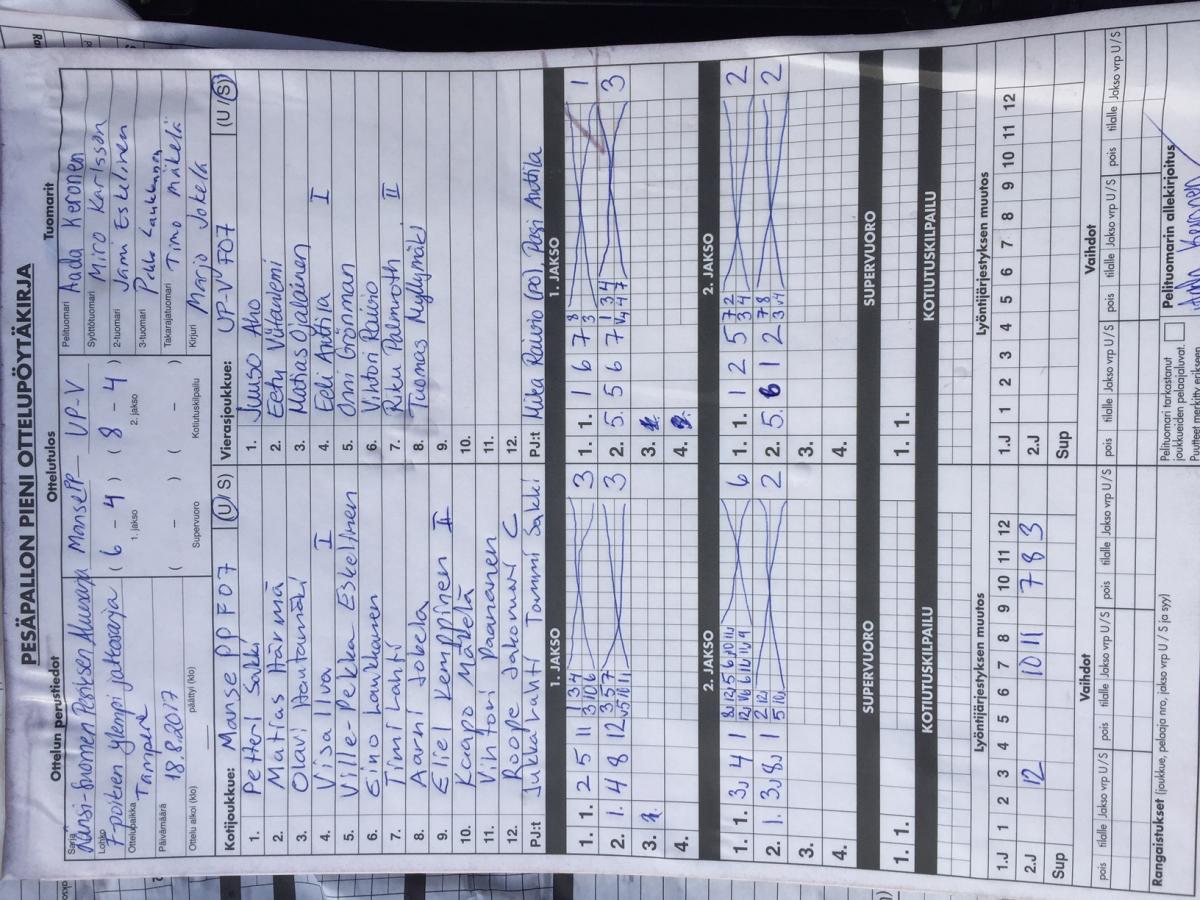 PESÄPALLON PIENI OTTELUPÖYTÄKIRJA
Ottelun perustiedot
Ottelutulos
Tuomarit
Sarja
Länsi-Suomen Pesiksen Aluesarja
Lohko
F-poikien ylempi jatkosarja
Ottelupaikka
Tampere
Päivämäärä
18.8.2017
Ottelu alkoi (klo)
päättyi (klo)
Manse PP – UP-V
( 6 – 4 ) ( 8 – 4 )
1. jakso
2. jakso
( – ) ( – )
Supervuoro
Kotiutuskilpailu
Pelituomari Aada Keronen
Syöttötuomari Miro Karlsson
2-tuomari Jami Eskelinen
3-tuomari Pekka Laukkanen
Takarajatuomari Timo Mäkelä
Kirjuri Marjo Jokela
Kotijoukkue: Manse PP F07 (U/S)
1. Petteri Sakki
2. Matias Härmä
3. Olavi Hautamäki
4. Visa Iiva I
5. Ville-Pekka Eskelinen
6. Eino Laukkanen
7. Timi Lahti
8. Aarni Jokela
9. Eliel Kemppinen II
10. Kaapo Mäkelä
11. Vintori Paananen
12. Roope Jakomari C
PJ:t Jukka Lahti Tommi Sakki
Vierasjoukkue: UP-V F07 (U/S)
1. Juuso Aho
2. Eetu Viitaniemi
3. Matias Ojalainen
4. Eeli Anttila I
5. Onni Grönman
6. Vihtori Raivio
7. Riku Palmroth II
8. Tuomas Myllymäki
9.
10.
11.
12.
PJ:t Mika Raivio (po), Pasi Anttila
1. JAKSO
1. 1. 2 5 11 3
2. 1. 4 8 12 3
3.
4.
1. JAKSO
1. 1. 1 6 7 1
2. 5. 5 6 7 3
3.
4.
2. JAKSO
1. 1. 3. 4 1 6
2. 1. 3. 8. 1 2
3.
4.
2. JAKSO
1. 1. 1 2 5 2
2. 5. 6 1 2 2
3.
4.
SUPERVUORO
1. 1.
SUPERVUORO
1. 1.
KOTIUTUSKILPAILU
KOTIUTUSKILPAILU
Lyöntijärjestyksen muutos
1.J 1 2 3 4 5 6 7 8 9 10 11 12
2.J 12 10 11 7 8 3
Sup
Lyöntijärjestyksen muutos
1.J 1 2 3 4 5 6 7 8 9 10 11 12
2.J
Sup
Vaihdot
pois tilalle Jakso vrp U / S pois tilalle Jakso vrp U / S pois tilalle Jakso vrp U / S
Vaihdot
pois tilalle Jakso vrp U / S pois tilalle Jakso vrp U / S pois tilalle Jakso vrp U / S
Rangaistukset (joukkue, pelaaja nro, jakso vrp U / S ja syy)
Pelituomari tarkastanut
joukkueiden pelaajaluvat.
Puutteet merkitty erikseen
Pelituomarin allekirjoitus
Aada Keronen